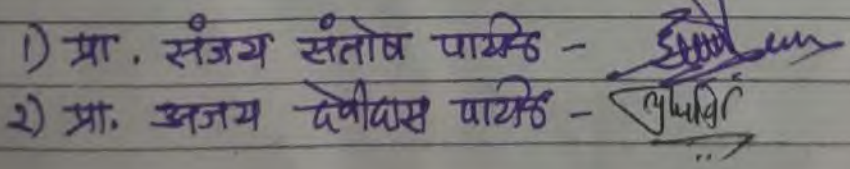 1) प्रा. संजय संतोष पाटील -
2) प्रा. अजय देवीदास पाटील -